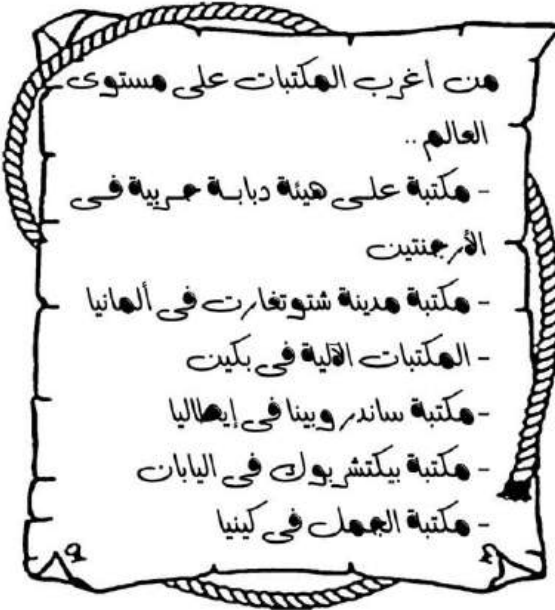 من أغرب المكتبات على مستوى
العالم ..
- مكتبة على هيئة دبابة حربية فى
الأرجنتين
- مكتبة مدينة شتوتغارت فى ألمانيا
- المكتبات الآلية فى بكين
- مكتبة ساندر وبينا فى إيطاليا
- مكتبة بيكتشر بوك فى اليابان
- مكتبة الجمل فى كينيا